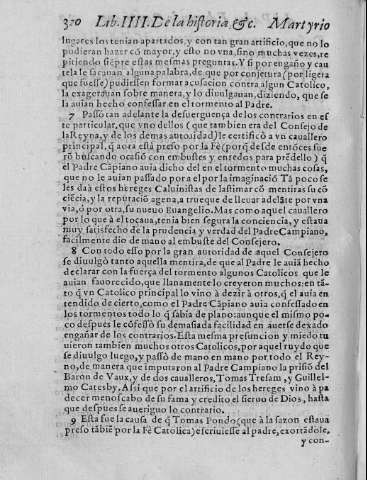 320 Lib. IIII. De la historia &c. Martyrio
lugares los tenian apartados, y con tan gran artificio, que no lo
pudieran hazer cõ mayor, y esto no vna, sino muchas vezes, re
pitiendo siẽpre estas mesmas preguntas. Y si por engaño y cau
tela le sacauan alguna palabra, de que por conjetura (por ligera
que fuesse) pudiessen formar acusacion contra algun Catolico,
la exagerauan sobre manera, y lo diuulgauan, diziendo, que se
la auian hecho confessar en el tormento al Padre.
7 Passò tan adelante la desuerguença de los contrarios en es
te particular, que vno dellos (que tambien era del Consejo de
la Reyna, y de los de mas autoridad) le certificò a vn cauallero
principal, q̃ aora està preso por la Fè (porq̃ desde entõces fue
rõ buscando ocasiõ con embustes y enredos para prẽdello) q̃
el Padre Cãpiano auia dicho del en el tormento muchas cosas,
que no le auian passado por el por la imaginaciõ Tã poco se
les da à estos hereges Caluinistas de lastimar cõ mentiras su cõ
ciẽcia, y la reputaciõ agena, a trueque de lleuar adelãte por vna
via, ó por otra, su nueuo Euangelio. Mas como aquel cauallero
por lo que à el tocaua, tenia bien segura la conciencia, y estaua
muy satisfecho de la prudencia y verdad del Padre Campiano,
facilmente dio de mano al embuste del Consejero.
8 Con todo esso por la gran autoridad de aquel Consejero
se diuulgò tanto aquella mentira, de que al Padre le auiã hecho
declarar con la fuerça del tormento algunos Catolicos que le
auian fauorecido, que llanamente lo creyeron muchos: en tã
to q̃ vn Catolico principal lo vino à dezir à otros, q̃ el auia en
tendido de cierto, como el Padre Cãpiano auia confessado en
los tormentos todo lo q̃ sabia de plano: aunque el mismo po
co despues le cõfessò su demasiada facilidad en auerse dexado
engañar de los contrarios. Esta mesma presuncion y miedo tu
uieron tambien muchos otros Catolicos, por aquel ruydo que
se diuulgo luego, y passò de mano en mano por todo el Rey-
no, de manera que imputaron al Padre Campiano la prisiõ del
Baron de Vaux, y de dos caualleros, Tomas Tresam, y Guillel-
mo Catesby. Assi que por el artificio de los hereges vino à pa
decer menoscabo de su fama y credito el sieruo de Dios, hasta
que despues se aueriguo lo contrario.
9 Esta fue la causa de q̃ Tomas Pondo (que à la sazon estaua
preso tãbiẽ por la Fè Catolica) escriuiesse al padre, exortãdole,
y con-